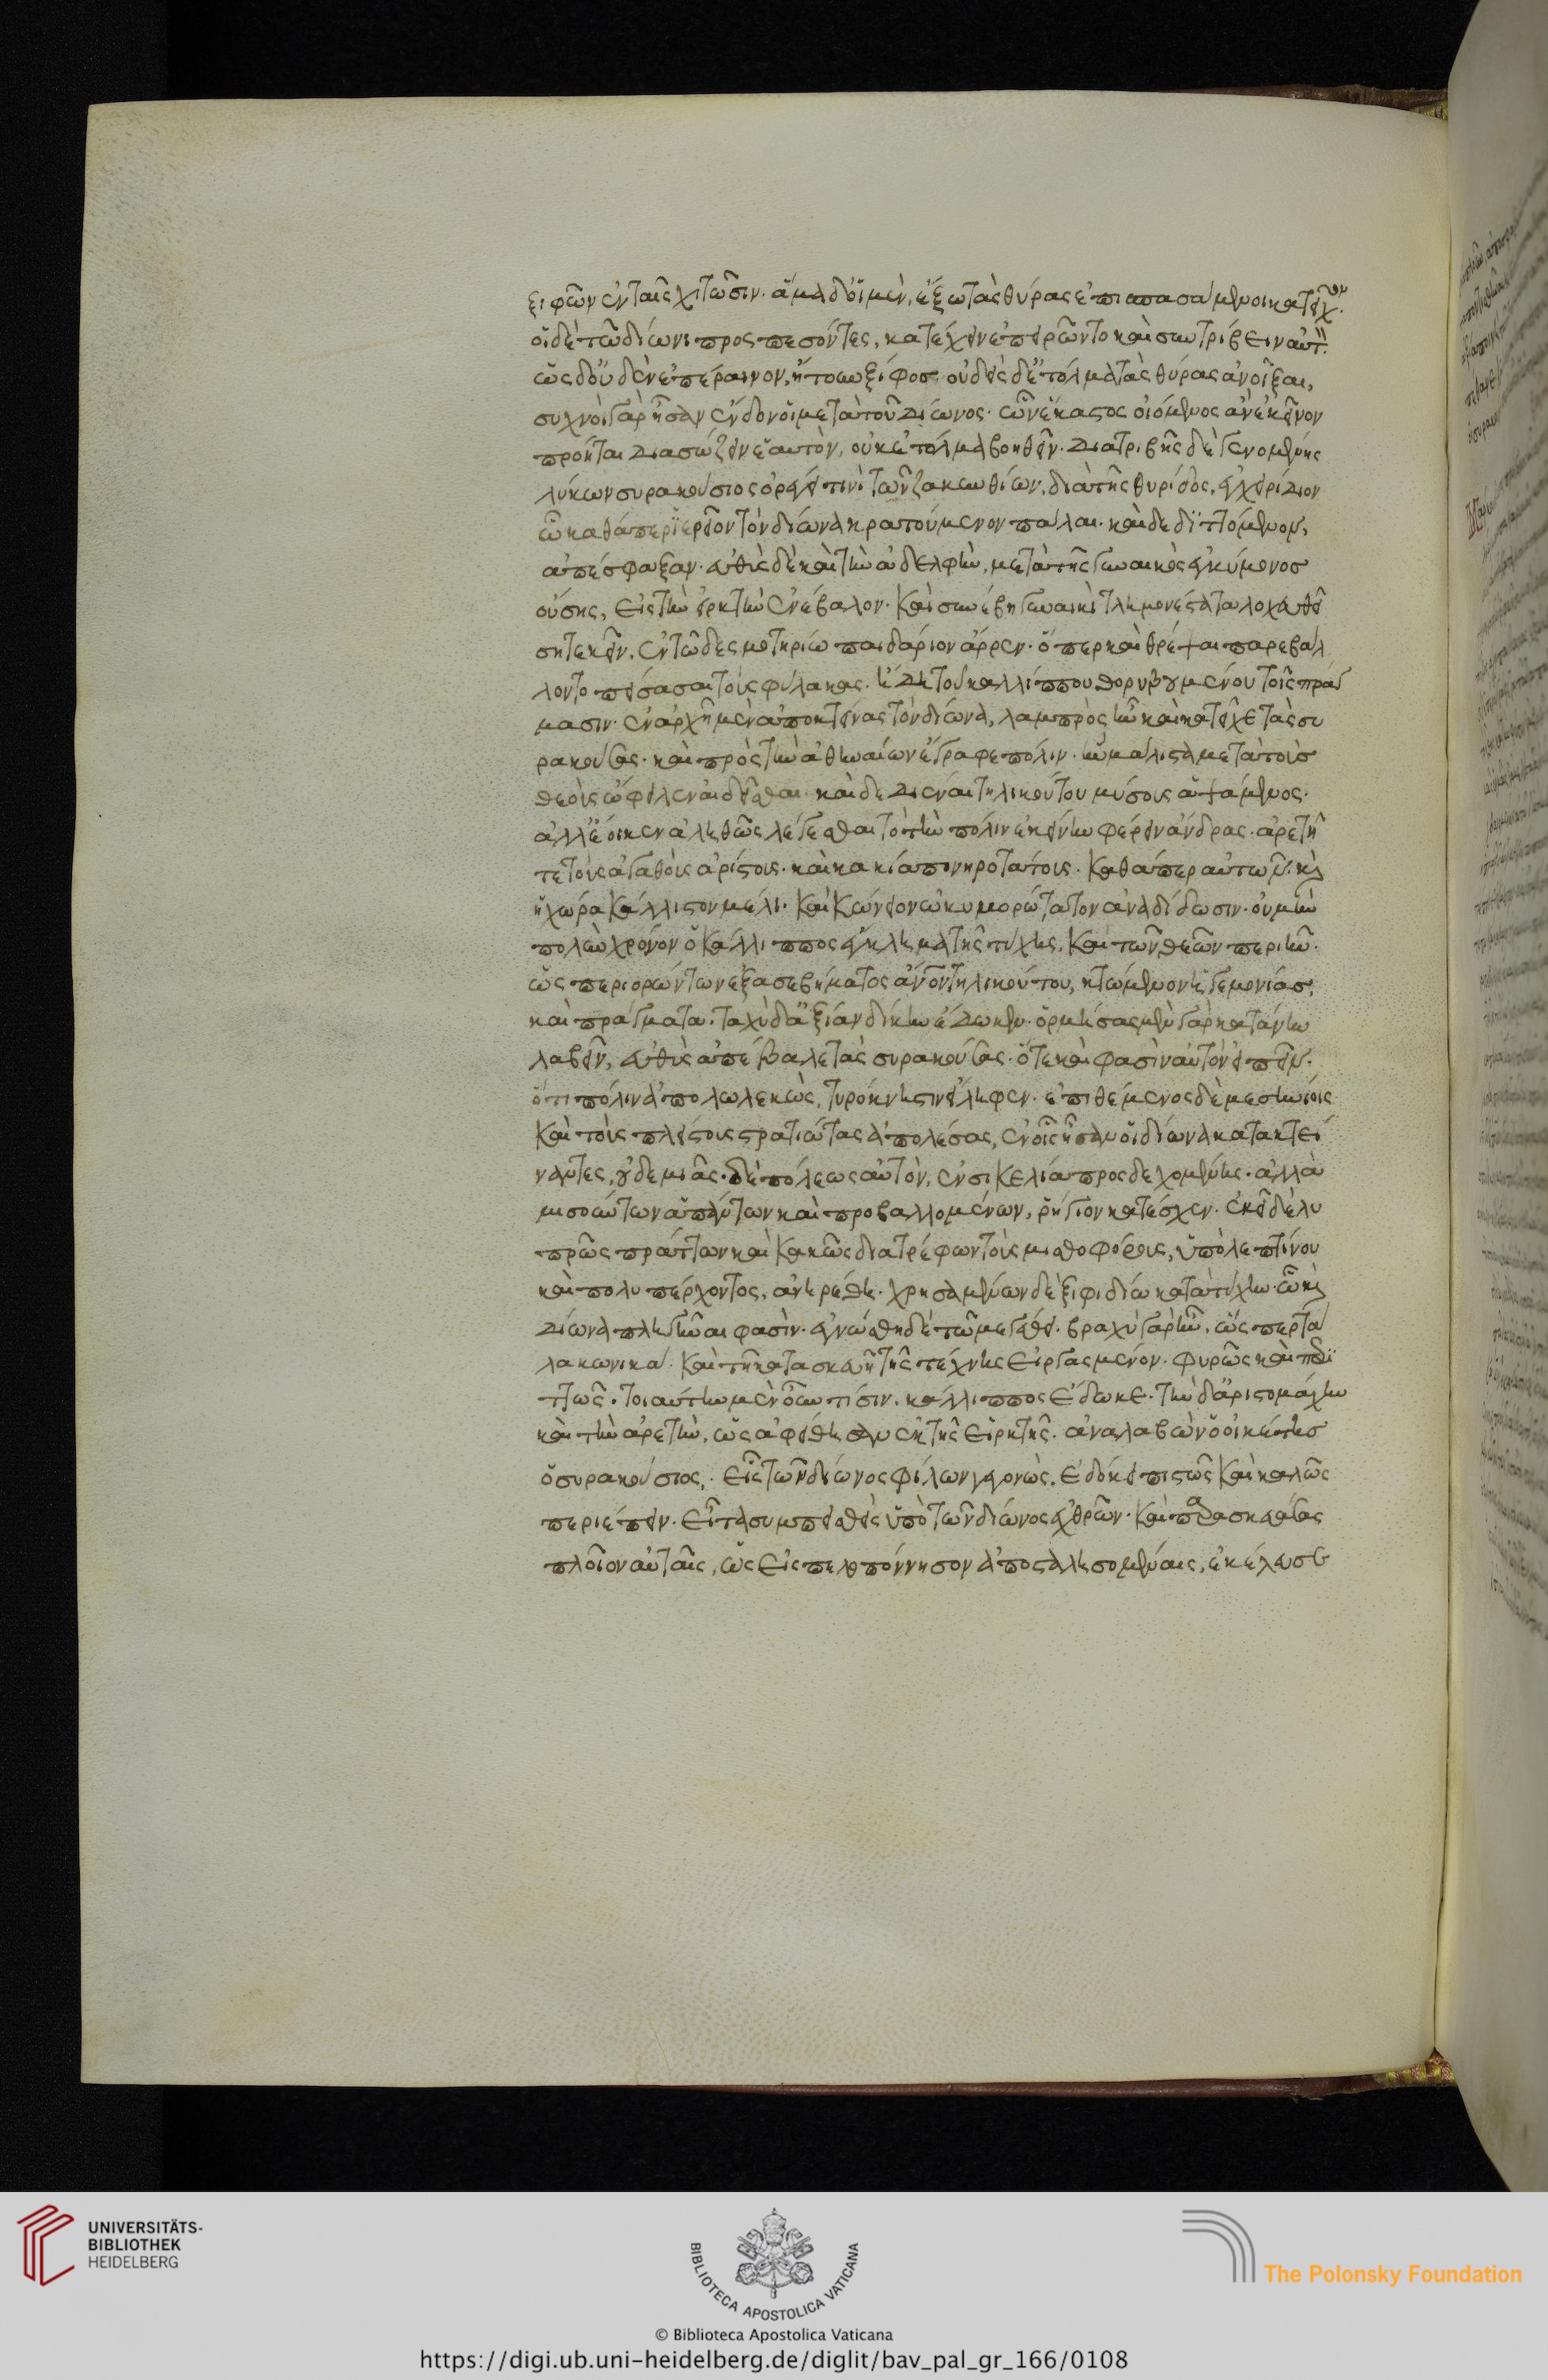 ξιφῶν ἐν τοῖς χιτῶσιν. ἅμα δ' οἱ μὲν, ἔξω τὰς θύρας ἐπισπασάμενοι κατεῖχον.
οἱ δὲ τῶ δίωνι προσπεσόντες, κατέχειν ἐπειρῶντο καὶ συντρίβειν αὐτόν.
ὡς δ' οὐδὲν ἐπέραινον, ἤτουν ξίφος. οὐδεὶς δ' ἐτόλμα τὰς θύρας ἀνοῖξαι,
συχνοὶ γὰρ ἦσαν ἔνδον οἱ μετὰ τοῦ δίωνος. ὧν ἕκαστος οἰόμενος ἂν ἐκεῖνον
προῆται διασώζειν ἑαυτὸν, οὐκ ἐτόλμα βοηθεῖν. διατριβῆς δὲ γενομένης
λύκων συρακούσιος ὀρέγει τινὶ τῶν ζακυνθίων, διὰ τῆς θυρίδος, ἐγχειρίδιον
ὧ καθάπερ ἱερεῖον τὸν δίωνα κρατούμενον πάλαι. καὶ δεδιττόμενον,
ἀπέσφαξαν. εὐθὺς δὲ καὶ τὴν ἀδελφὴν, μετὰ τῆς γυναικὸς ἐγκύμονος
οὔσης, εἰς τὴν εἱρκτὴν ἐνέβαλον. καὶ συνέβη γυναικὶ τλημονέστατα λοχευθεί
ση τεκεῖν, ἐν τῶ δεσμωτηρίω παιδάριον ἄρρεν. ὅπερ καὶ θρέψαι παρεβάλ
λοντο πείσασαι τοὺς φύλακας. ἤδη τοῦ καλλίππου θορυβουμένου τοῖς πράγ
μασιν. ἐν ἀρχῆ μὲν ἀποκτείνας τὸν δίωνα, λαμπρὸς ἦν καὶ κατεῖχε τὰς συ
ρακούσας. καὶ πρὸς τὴν ἀθηναίων ἔγραφε πόλιν. ἣν μάλιστα μετὰ τοὺς
θεοὺς ὤφειλεν αἰδεῖσθαι. καὶ δεδιέναι τηλικούτου μύσους ἁψάμενος.
ἀλλ' ἔοικεν ἀληθῶς λέγεσθαι τὸ τὴν πόλιν ἐκείνην φέρειν ἄνδρας. ἀρετῆ
τε τοὺς ἀγαθοὺς ἀρίστους. καὶ κακία πονηροτάτους. καθάπερ αὐτῶν καὶ
ἡ χώρα κάλλιστον μέλι. καὶ κώνειον ὠκυμορώτατον ἀναδίδωσιν. οὐ μὴν
πολὺν χρόνον ὁ κάλλιππος ἔγκλημα τῆς τύχης, καὶ τῶν θεῶν περιῆν.
ὡς περιορώντων ἐξ ἀσεβήματος ἄνθρωπον τηλικούτου, κτώμενον ἡγεμονίας,
καὶ πράγματα. ταχὺ δ' ἀξίαν δίκην ἔδωκεν. ὁρμήσας μὲν γὰρ κατάνην
λαβεῖν, εὐθὺς ἀπέβαλε τὰς συρακούσας. ὅτε καὶ φασὶν αὐτὸν εἰπεῖν.
ὅτι πόλιν ἀπολωλεκὼς, τυρόκνηστιν εἴληφεν. ἐπιθέμενος δὲ μεσηνίοις
καὶ τοὺς πλείστους στρατιώτας ἀπολέσας, ἐν οἷς ἦσαν οἱ δίωνα κατακτεί
ναντες, οὐδεμιᾶς δὲ πόλεως αὐτὸν, ἐν σικελία προσδεχομένης. ἀλλὰ
μισούντων ἁπάντων καὶ προβαλλομένων, ῥήγιον κατέσχεν. ἐκεῖ δὲ λυ
πρῶς πράττων καὶ κακῶς διατρέφων τοὺς μισθοφόρους, ὑπὸ λεπτίνου
καὶ πολυπέρχοντος, ἀνηρέθη. χρησαμένων δὲ ξιφιδίω κατὰ τύχην. ὧ καὶ
δίωνα πληγῆναι φασὶν. ἐγνώσθη δὲ τῶ μεγέθει. βραχὺ γὰρ ἦν, ὥσπερ τὰ
λακωνικά. καὶ τῆ κατασκευῆ τῆς τέχνης εἰργασμένον. γλαφυρῶς καὶ περι
ττῶς. τοιαύτην μὲν οὖν τίσιν. κάλλιππος ἔδωκε. τὴν δ' ἀριστομάχην
καὶ τὴν ἀρετὴν, ὡς ἀφείθησαν ἐκ τῆς εἱρκτῆς. ἀναλαβὼν ὁ οἱκέτης
ὁ συρακούσιος, εἷς τῶν δίωνος φίλων γεγονὼς, ἐδόκει πιστῶς καὶ καλῶς
περιέπειν. εἶτα συμπεισθεὶς ὑπὸ τῶν δίωνος ἐχθρῶν. καὶ παρασκευάσας
πλοῖον αὐταῖς, ὡς εἰς πελοπόννησον ἀποσταλησομέναις, ἐκέλευσε
UNIVERSITÄTS-
BIBLIOTHEK
HEIDELBERG
BIBLIOTECA APOSTOLICA VATICANA
The Polonsky Foundation
© Biblioteca Apostolica Vaticana
https://digi.ub.uni-heidelberg.de/diglit/bav_pal_gr_166/0108